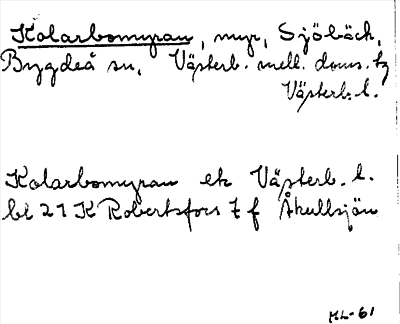 Kolarbomyran, myr, Sjöbäck,
Bygdeå sn, Västerb. mell. doms. tg
Västerb. l.
Kolarbomyran ek Västerb. l.
bl 21 K Robertsfors 7 f Åkullsjön
ML-61